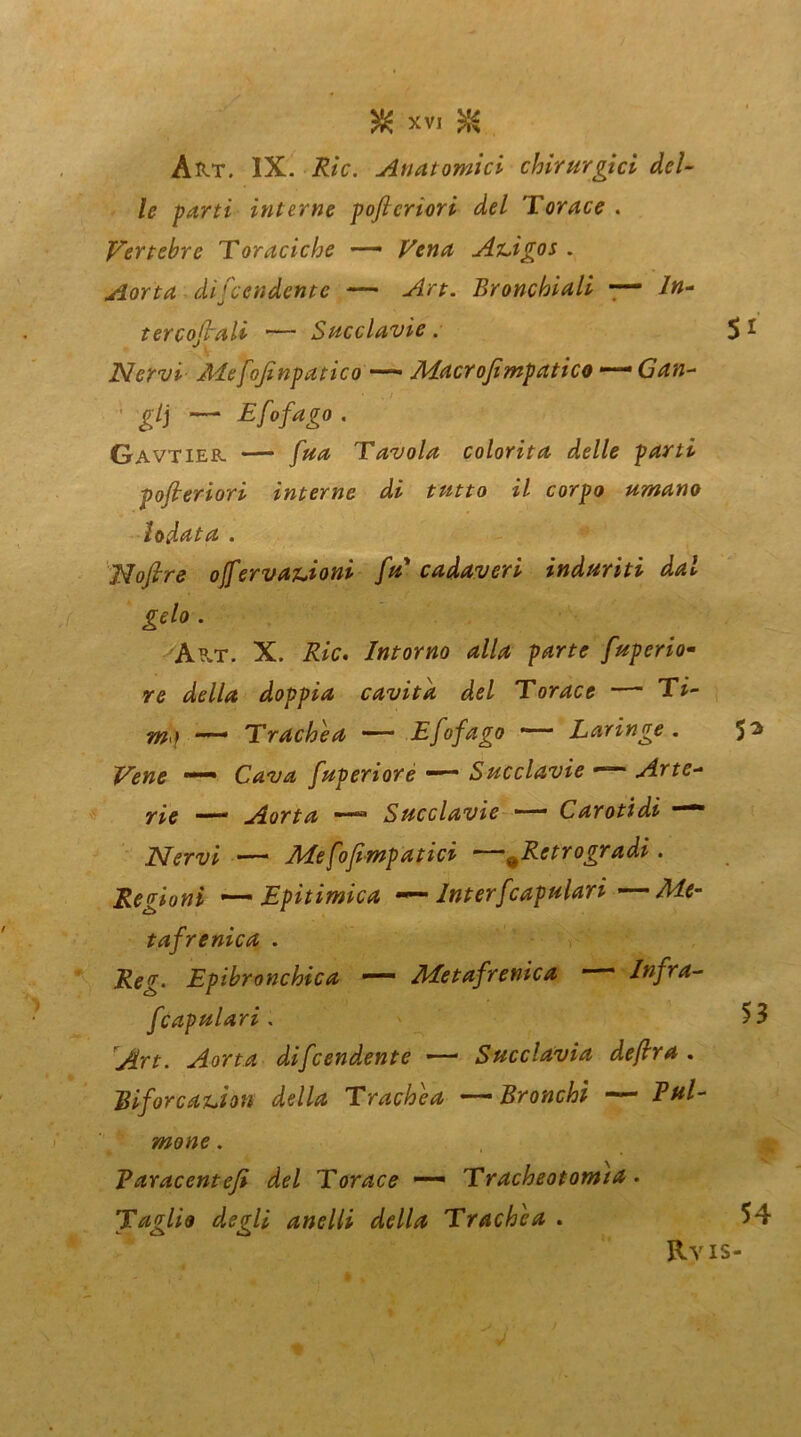 ※ XVI ※
ART. IX. Ric. Anatomici chirurgici del-
le parti interne poſteriori del Torace .
Vertebre Toraciche — Vena Azigos .
Aorta diſcendente — Art. Bronchiali — In-
tercoſtali — Succlavie . 51
Nervi Meſoſinpatico — Macroſimpatico — Gan-
glj — Eſofago .
GAVTIER — ſua Tavola colorita delle parti
poſteriori interne di tutto il corpo umano
lodata .
Noſtre oſſervazioni ſu' cadaveri induriti dal
gelo .
ART. X. Ric. Intorno alla parte ſuperio-
re della doppia cavità del Torace — Ti-
mo — Trachèa — Eſofago — Laringe . 52
Vene — Cava ſuperiore — Succlavie — Arte-
rie — Aorta — Succlavie — Carotidi —
Nervi — Meſoſimpatici — Retrogradi .
Regioni — Epitimica — Interſcapulari — Me-
tafrenica .
Reg. Epibronchica — Metafrenica — Infra-
ſcapulari . 53
Art. Aorta diſcendente — Succlavia deſtra .
Biforcazion della Trachèa — Bronchi — Pul-
mone .
Paracenteſi del Torace — Tracheotomìa .
Taglio degli anelli della Trachèa . 54
RVIS-